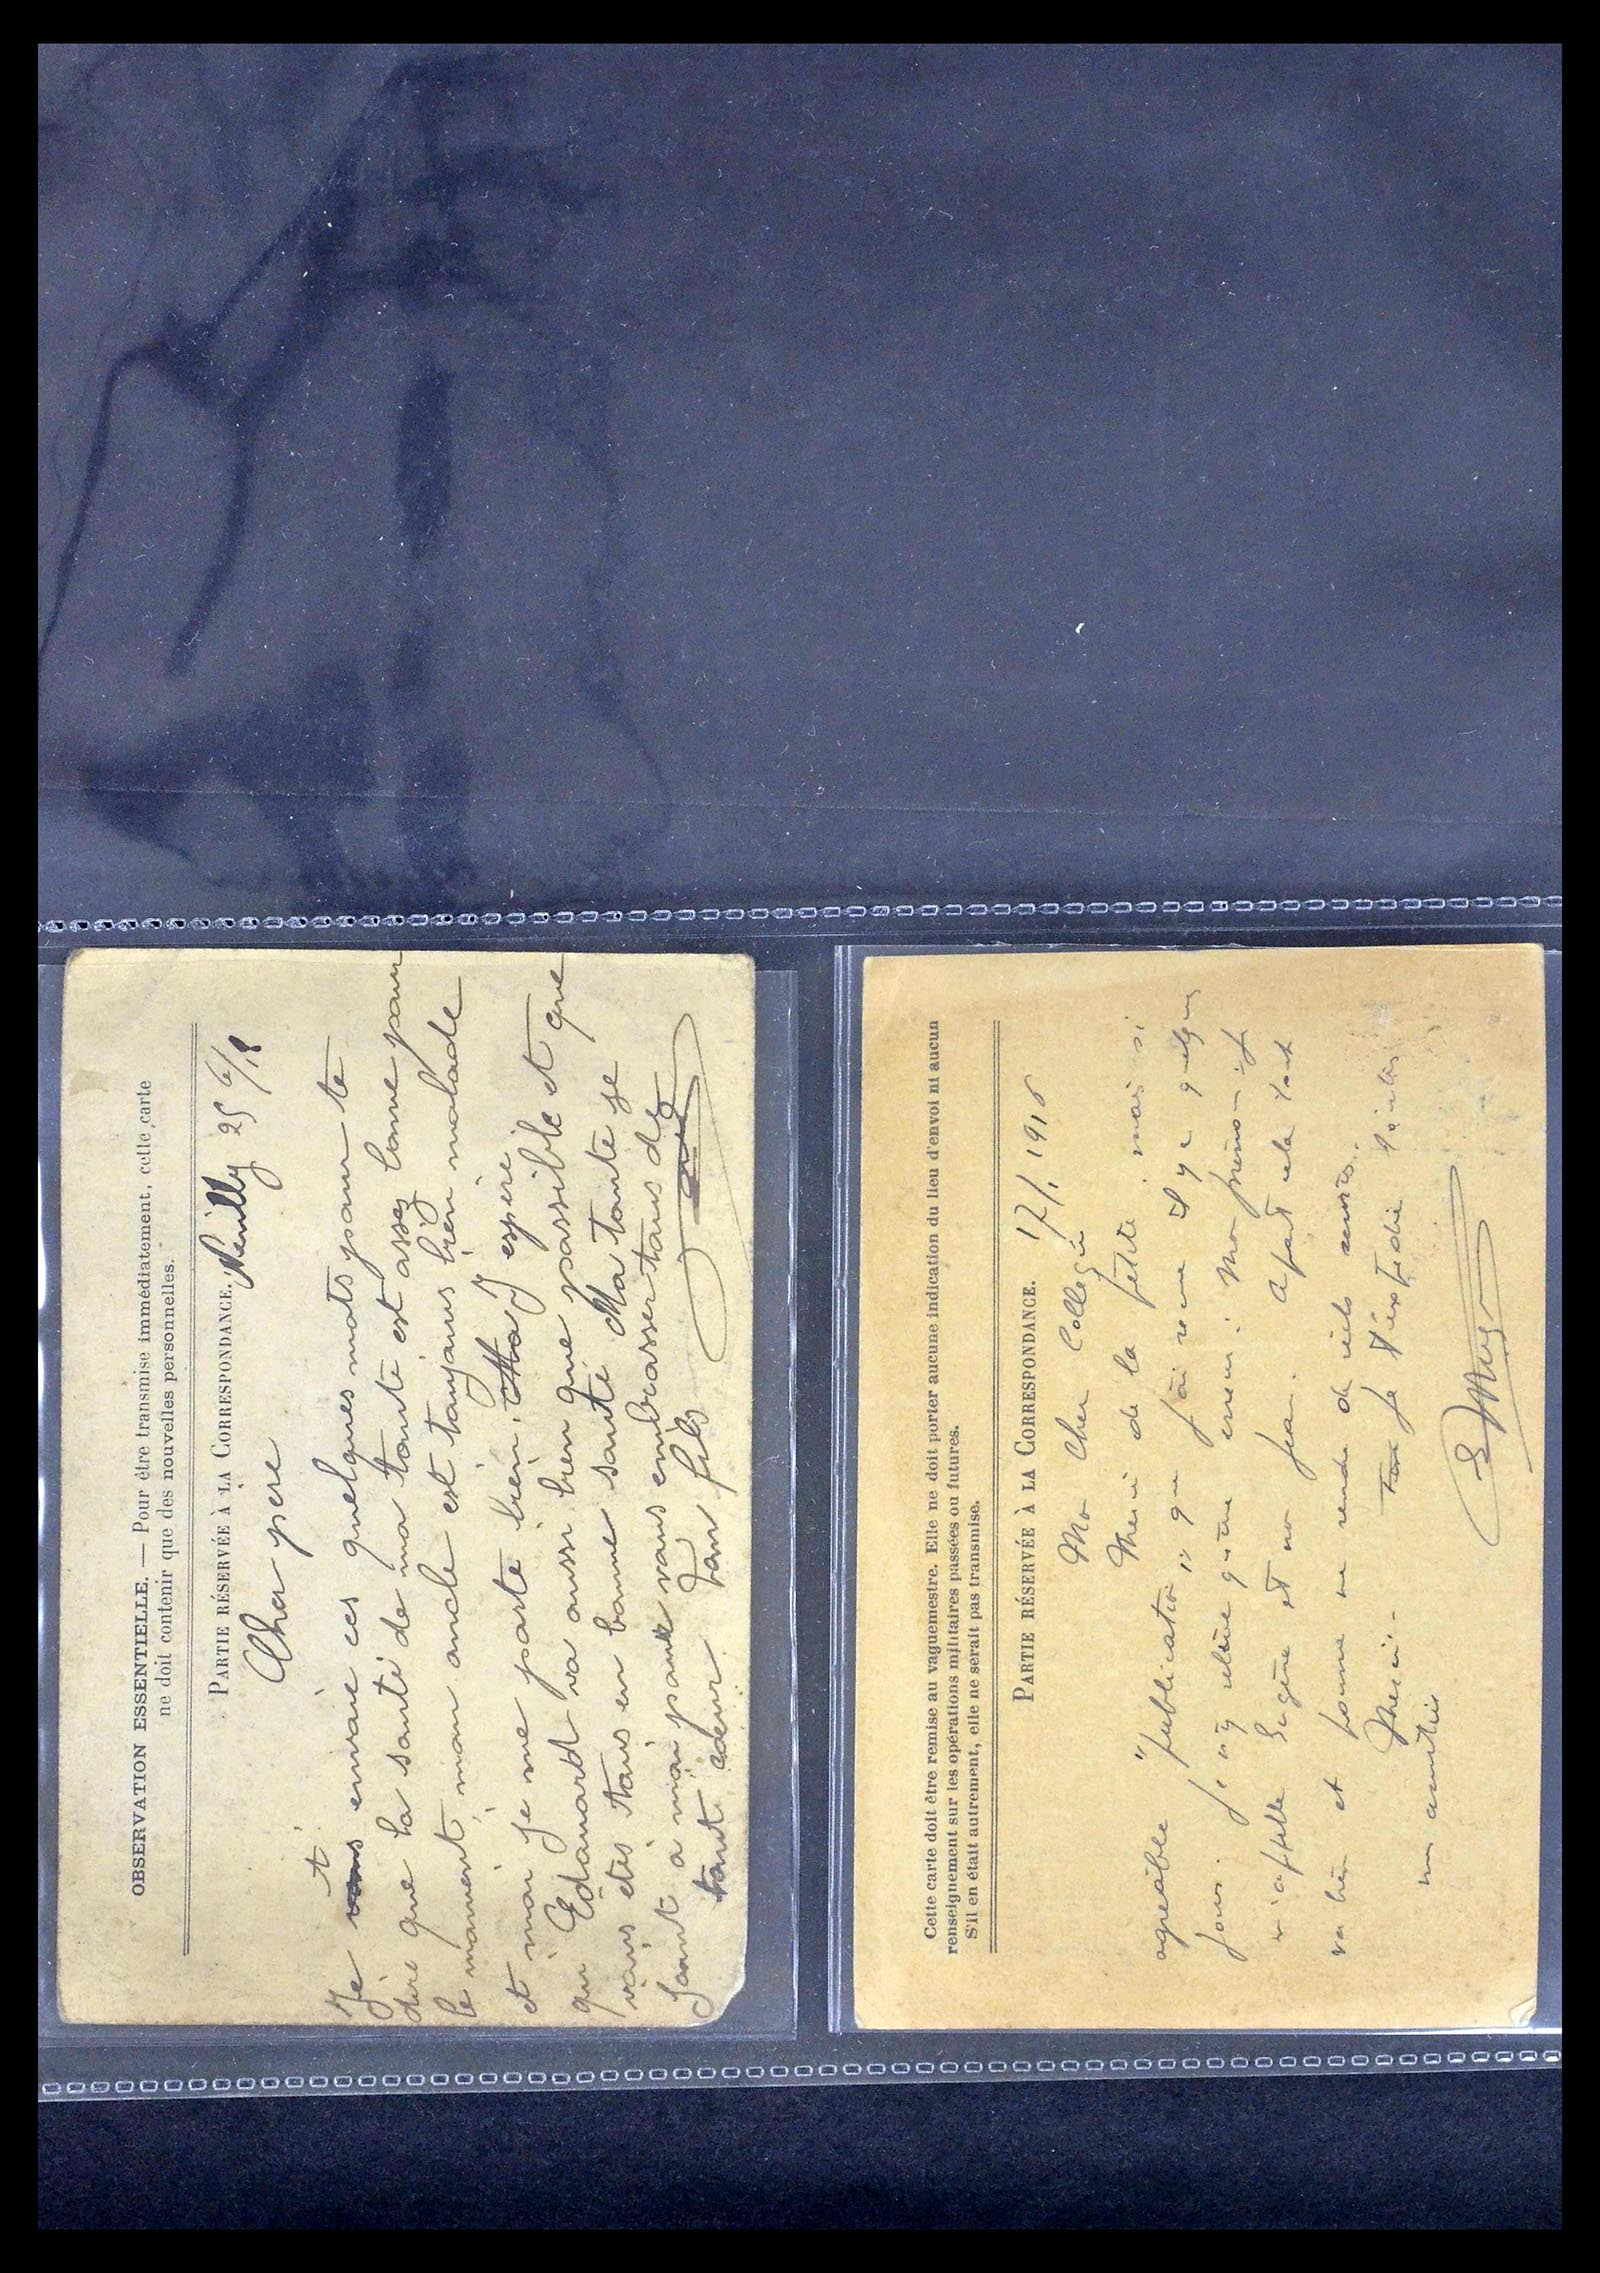 OBSERVATION ESSENTIELLE. — Pour être transmise immédiatement, cette carte
ne doit contenir que des nouvelles personnelles.
PARTIE RÉSERVÉE À LA CORRESPONDANCE.
Neuilly 25 6/18
Cher pere
t
Je vous envoie ces quelques mots pour te
dire que la santé de ma tante est assez bonne pour
le moment, mon oncle est toujours bien malade
et moi je me porte bien. J espère
qu Edouard va aussi bien que possible et que
vous êtes tous en bonne santé Ma tante se
joint a moi pour vous embrasser tous de
tout cœur. Ton fils
Cette carte doit être remise au vaguemestre. Elle ne doit porter aucune indication du lieu d'envoi ni aucun
renseignement sur les opérations militaires passées ou futures.
S'il en était autrement, elle ne serait pas transmise.
PARTIE RÉSERVÉE À LA CORRESPONDANCE.
17/1 1916
Mon Cher Collegue
Merci de la petite mais si
agréable "publication" que j'ai reçue il y a quelques
jours. J'
m'appelle Eugène et non Jean. A part cela tout
va bien et
Merci